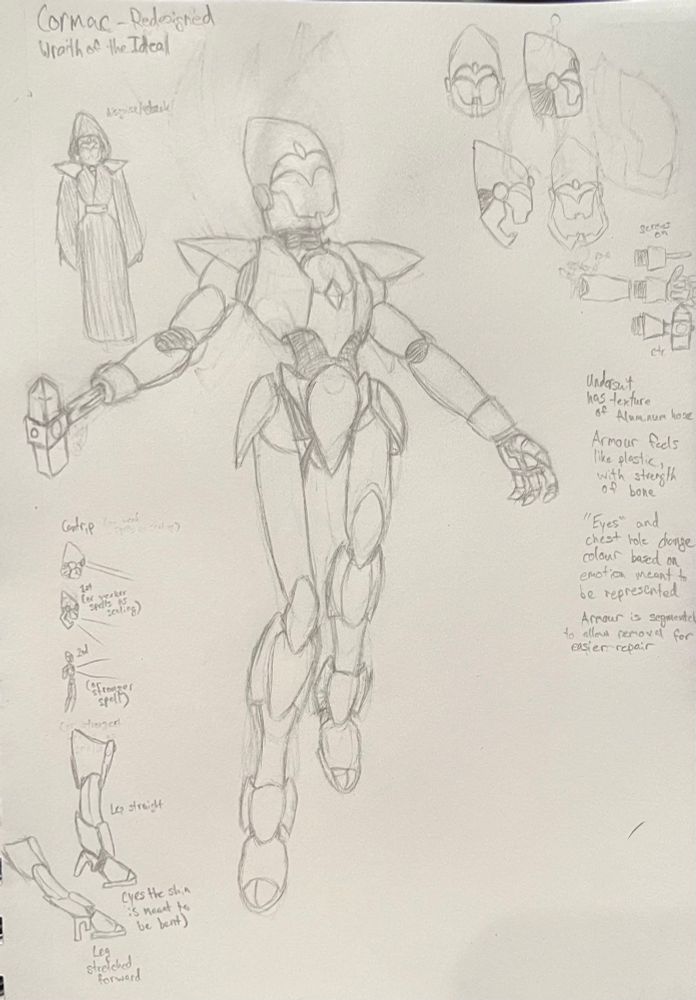 Cormac - Redesigned
Wraith of the Ideal
disguise/cloak
screws
on
etc
Undersuit
has texture
of Aluminum hose
Armour feels
like plastic,
with strength
of bone
"Eyes" and
chest hole change
colour based on
emotion meant to
be represented
Armour is segmented
to allow removal for
easier repair
Cantrip
1st
(or weaker
spells
scaling)
2nd
(or stronger
spell)
Leg straight
(yes the shin
is meant to
be bent)
Leg
stretched
forward